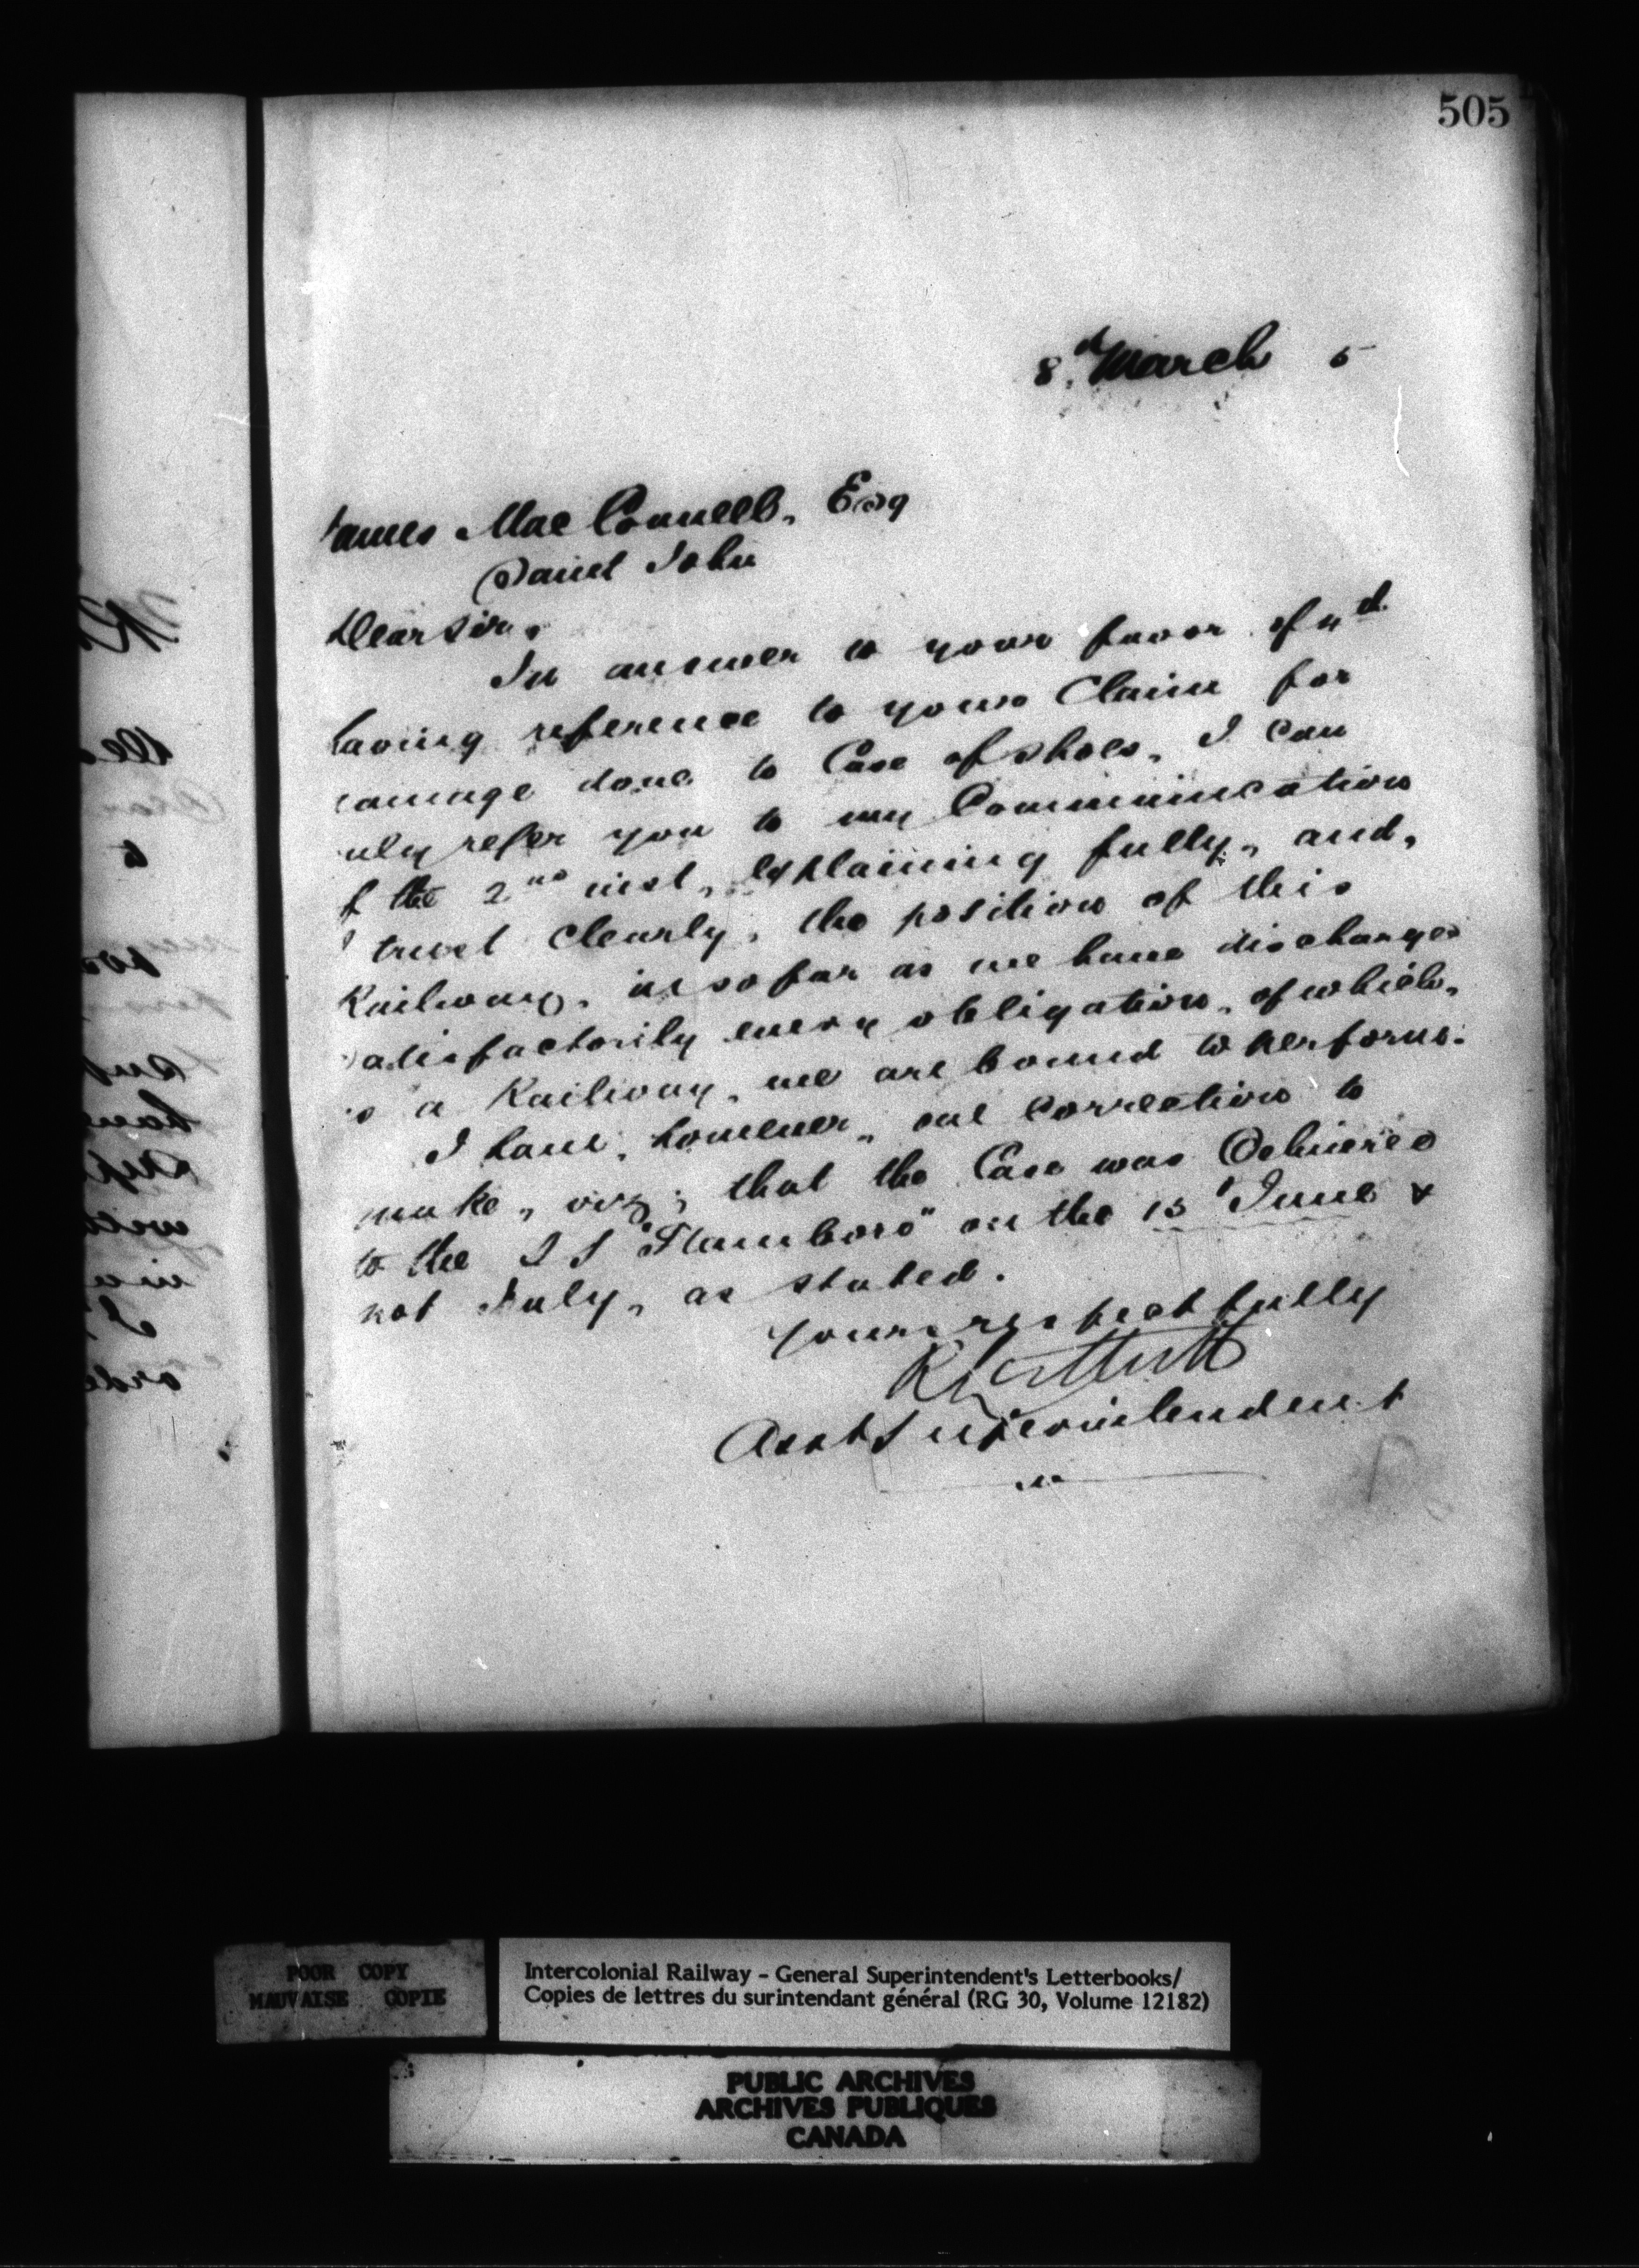 505
8th March 5
James MacConnell, Esq
Saint John
Dear Sir,
In answer to your favor of 4th
having reference to your Claim for
damage done to Case of shoes, I can
only refer you to my Communication
of the 2nd inst, explaining fully, and,
I trust clearly, the position of this
Railway, in so far as we have discharged
satisfactorily every obligation, of which,
as a Railway, we are bound to perform.
I have, however, one correction to
make, viz; that the Case was Delivered
to the S S "Flamboro" on the 15 June &
not July, as stated.
Yours respectfully
Asst Superintendent
POOR COPY
MAUVAISE COPIE
Intercolonial Railway - General Superintendent's Letterbooks/
Copies de lettres du surintendant général (RG 30, Volume 12182)
PUBLIC ARCHIVES
ARCHIVES PUBLIQUES
CANADA